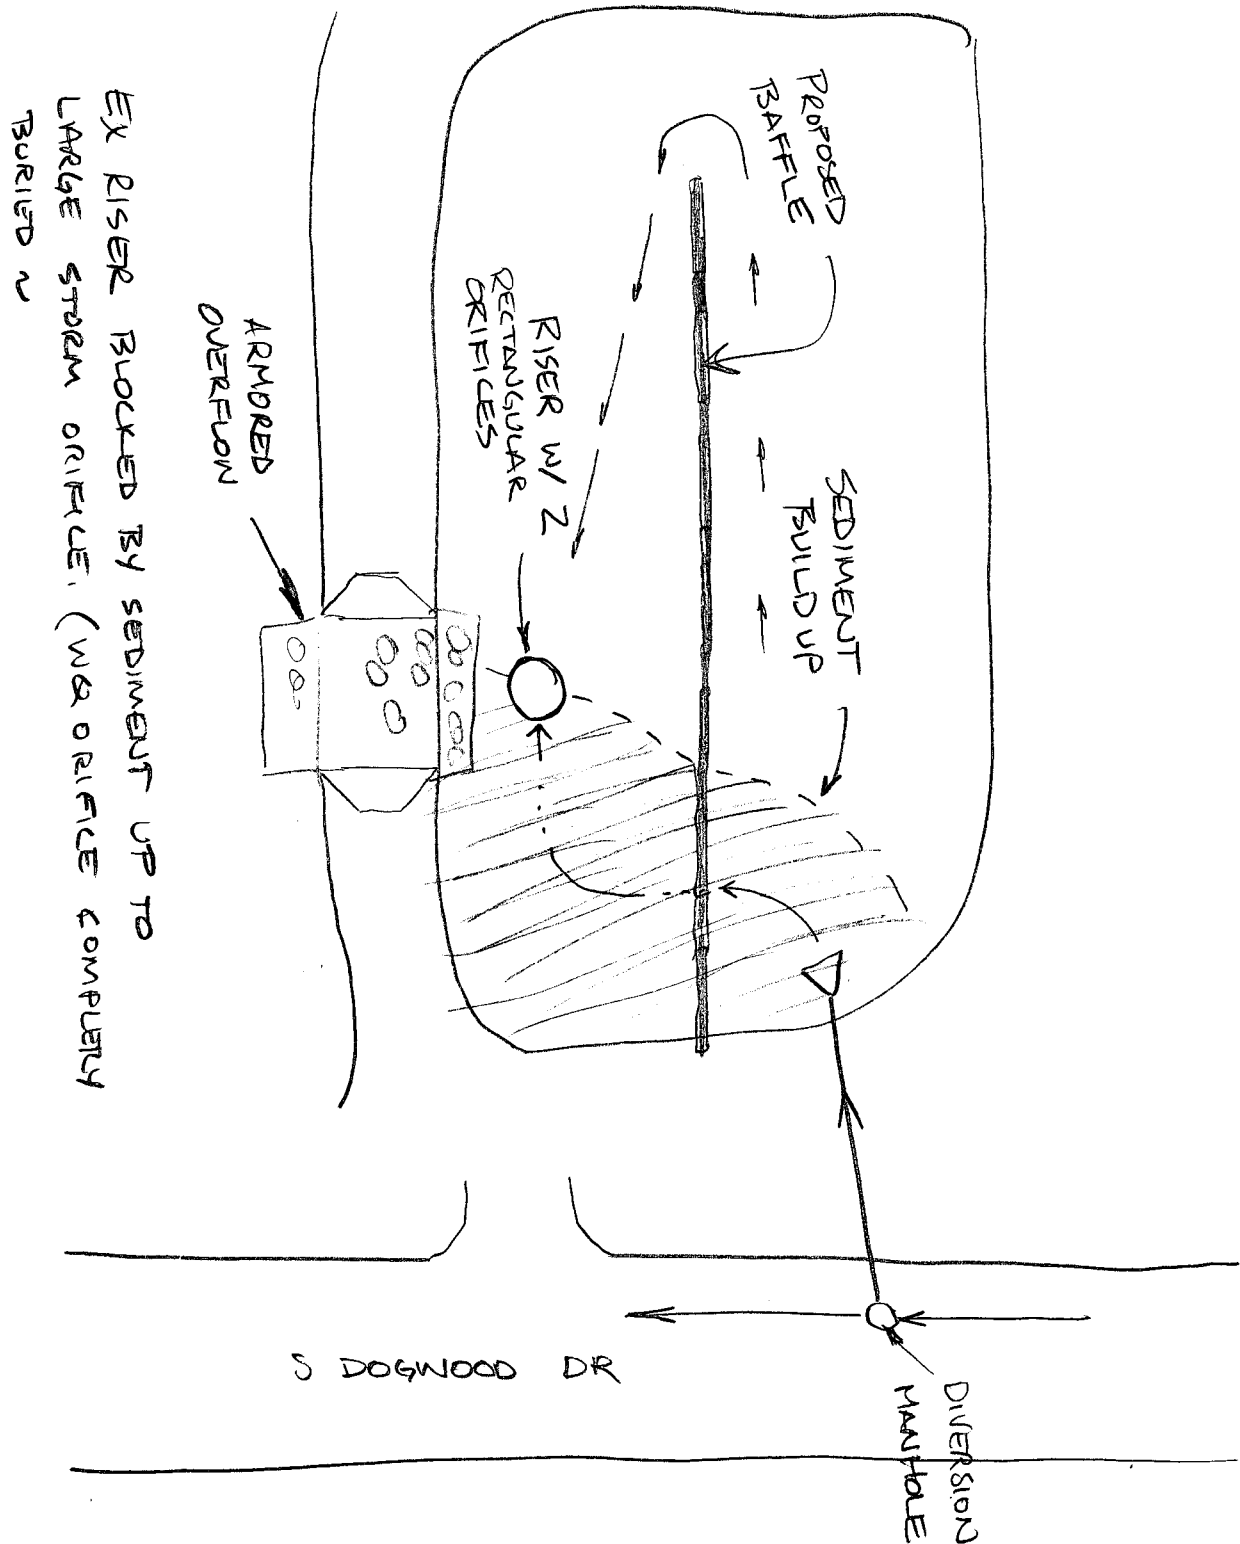 PROPOSED
BAFFLE
SEDIMENT
BUILD UP
RISER W/ 2
RECTANGULAR
ORIFICES
ARMORED
OVERFLOW
EX RISER BLOCKED BY SEDIMENT UP TO
LARGE STORM ORIFICE. (WQ ORIFICE COMPLETLY
BURIED ~
DIVERSION
MANHOLE
S DOGWOOD DR